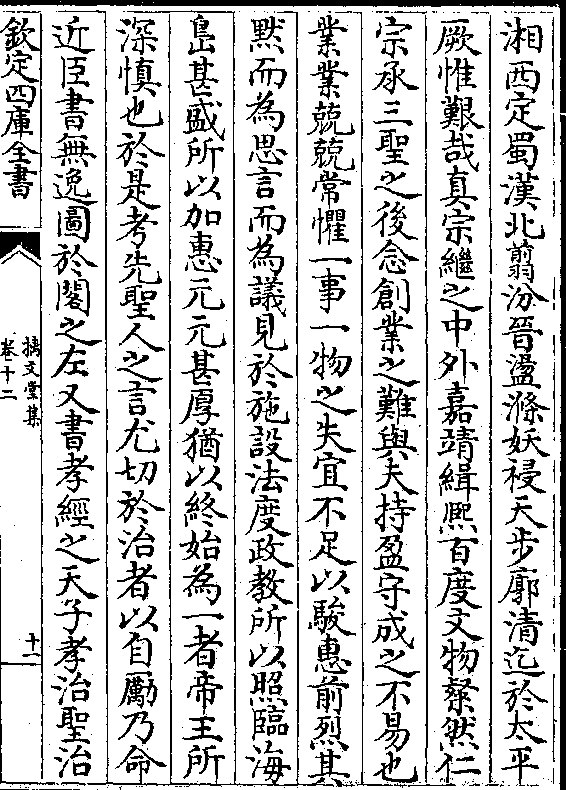 湘西定蜀漢北翦汾晉盪滌妖祲天步廓清迄於太平
厥惟艱哉真宗繼之中外嘉靖緝熈百度文物粲然仁
宗承三聖之後念創業之難與夫持盈守成之不易也
業業兢兢常懼一事一物之失宜不足以駿惠前烈其
黙而為思言而為議見於施設法度政教所以照臨海
㠀甚盛所以加惠元元甚厚猶以終始為一者帝王所
深慎也於是考先聖人之言尤切於治者以自勵乃命
近臣書無逸圖於閣之左又書孝經之天子孝治聖治
欽定四庫全書
摛文堂集
卷十二
十一